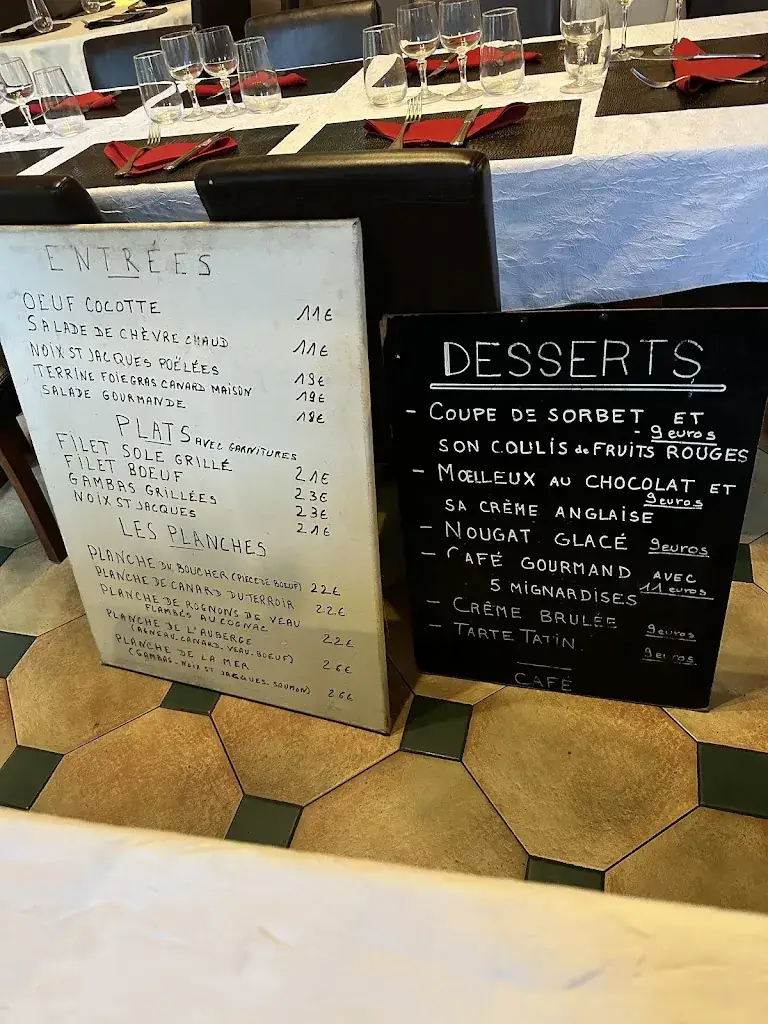 ENTRÉES
OEUF COCOTTE 11€
SALADE DE CHÈVRE CHAUD 11€
NOIX ST JACQUES POÊLÉES 19€
TERRINE FOIE GRAS CANARD MAISON 19€
SALADE GOURMANDE 18€
PLATS AVEC GARNITURES
FILET SOLE GRILLÉ 21€
FILET BOEUF 23€
GAMBAS GRILLÉES 23€
NOIX ST JACQUES 21€
LES PLANCHES
PLANCHE DU BOUCHER (PIECE DE BOEUF) 22€
PLANCHE DE CANARD DU TERROIR 22€
PLANCHE DE ROGNONS DE VEAU
FLAMBÉS AU COGNAC 22€
PLANCHE DE L'AUBERGE
(AGNEAU.CANARD.VEAU.BOEUF) 26€
PLANCHE DE LA MER
(GAMBAS-NOIX ST JACQUES-SAUMON) 26€
DESSERTS
- COUPE DE SORBET ET
- 9euros
SON COULIS de FRUITS ROUGES
- MŒLLEUX AU CHOCOLAT ET
9euros
SA CRÈME ANGLAISE
- NOUGAT GLACÉ 9euros
- CAFÉ GOURMAND AVEC
5 MIGNARDISES 11euros
- CRÈME BRULÉE 9euros
- TARTE TATIN 9euros
CAFÉ